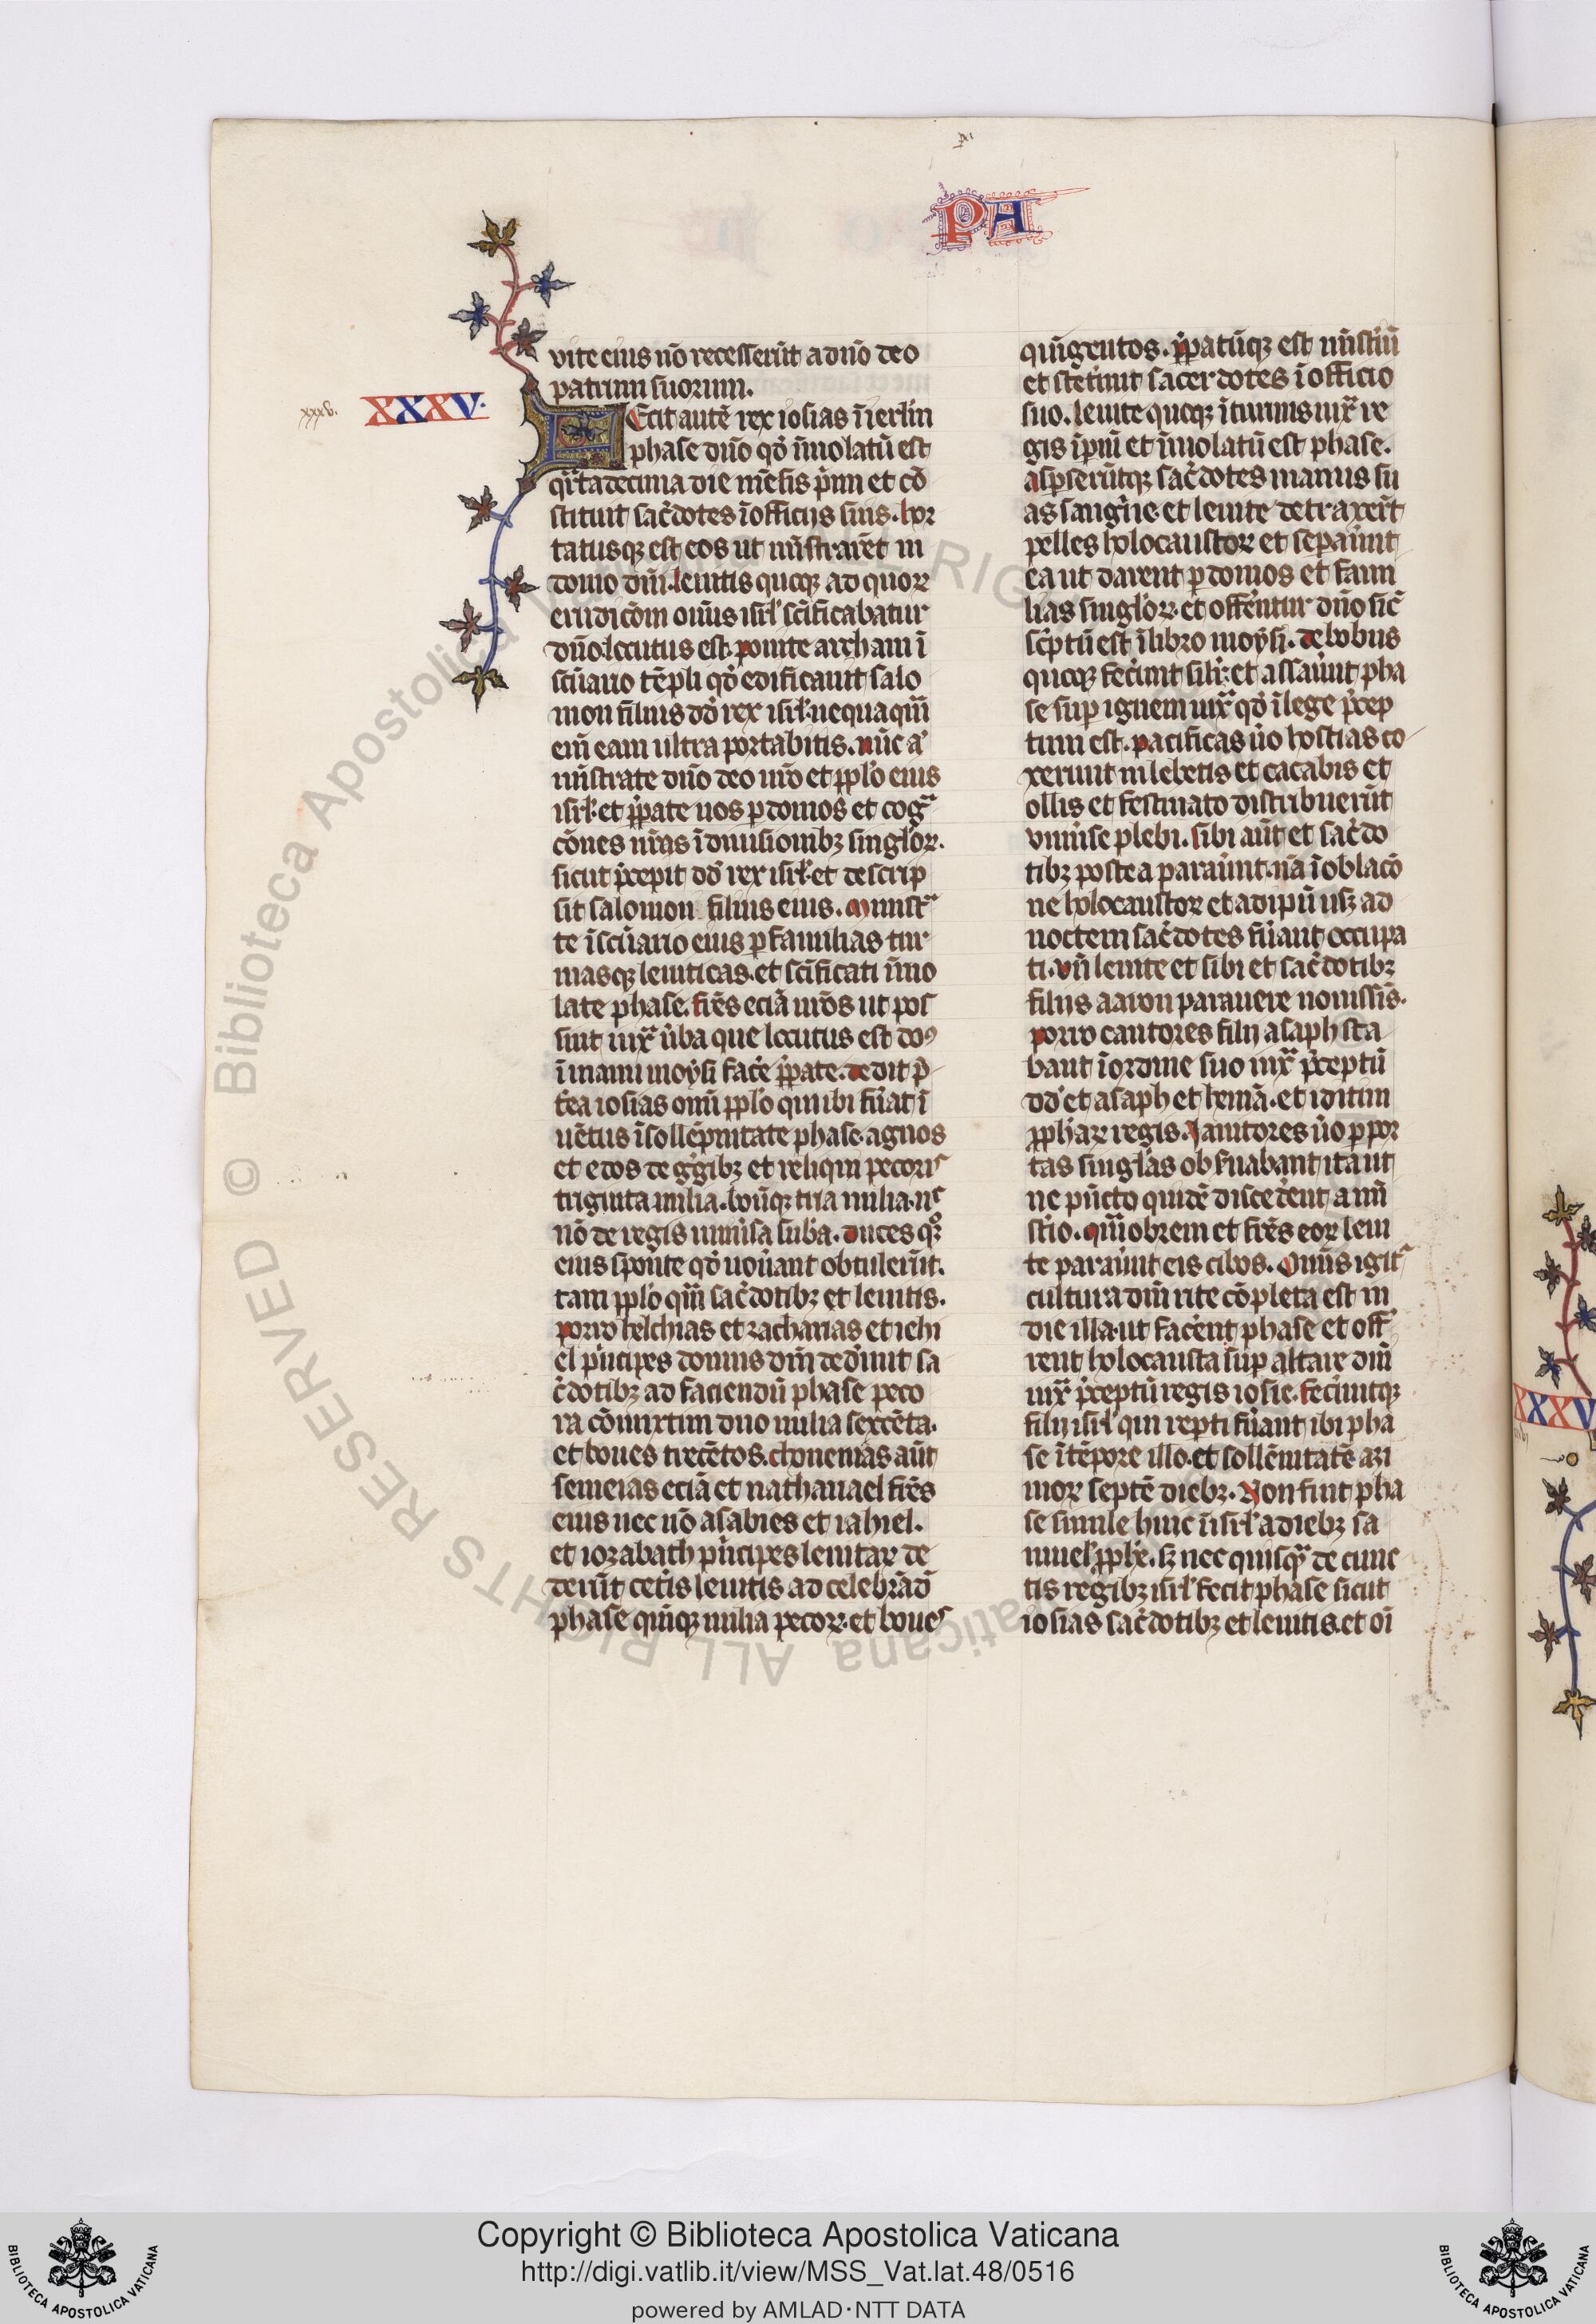 PA
vite eius nō recesserūt a dño deo
patrum suorum.
xxxv.
XXXV.
Fecit autē rex iosias ī ierl̄m
phase dño qđ īmolatū est
qᵃrtadecima die mēsis pⁱmi et cō
stituit sac̄dotes ī officijs suis. hor
tatusqꝫ est eos ut mīstrarēt in
domo dm̄i. leuitis quoqꝫ ad quoꝝ
erudicōm om̄is isrl̄ sc̄ificabatur
dño locutus est. ponite archam ī
sc̄uario tēpli qđ edificauit salo
mon filius dđ rex isrl̄. nequaqᵃm
em̄ eam ultra portabitis. nūc aͥ
mīstrate dño deo ur̄o et ppl̄o eius
isrl̄. et p̄pate uos ꝑ domos et cogᵃ
cōnes ur̄as ī diuisionibꝫ singl̄oꝝ.
sicut p̄cepit dđ rex isrl̄. et descrip
sit salomon filius eius. Ministᵃ
te ī sc̄uario eius ꝑ familias tur
masqꝫ leuiticas. et sc̄ificati īmo
late phase. fr̄es eciā ur̄os ut pos
sint iuxᵃ ūba que locutus est dꝰ
ī manu moysi fac̄e p̄pate. dedit p̄
t̄ea iosias om̄i ppl̄o qui ibi fūat ī
uētus ī sollēpnitate phase. agnos
et edos de gͤgibꝫ et reliqui pecoris
triginta milia. boūqꝫ tria milia. hͨ
nō de regis uniūsa sub̄a. duces qꝫ
eius sponte qđ uoūant obtulerūt.
tam ppl̄o qᵃm sac̄dotibꝫ et leuitis.
porro helchias et zacharias et iehi
el pⁱncipes domus dm̄i dedūnt sa
c̄dotibꝫ ad faciendū phase peco
ra cōmixtim duo milia sexcēta.
et boues trecētos. chonenias aūt
semeias eciā et nathanael fr̄es
eius nec nō asabies et iahiel.
et iozabath pⁱncipes leuitaꝝ de
derūt cet̄is leuitis ad celebrādū
phase quīqꝫ milia pecoꝝ. et boues
quīgentos. p̄patūqꝫ est mīst̄iū
et stet̄unt sacerdotes ī officio
suo. leuite quoqꝫ ī turmis iuxᵃ re
gis īpm̄ et īmolatū est phase.
aspserūtqꝫ sac̄dotes manus su
as sangⁱne. et leuite detraxer̄t
pelles holocaustoꝝ et sepaūnt
ea ut darent ꝑ domos et fami
lias singl̄oꝝ. et off̄entur dño sic̄
sc̄ptū est ī libro moysi. de bobus
quoqꝫ fec̄unt sil̄r. et assaūnt pha
se suꝑ ignem iuxᵃ qđ ī lege p̄cep
tum est. pacificas ūo hostias co
xerunt in lebetis et cacabis et
ollis et festinato distribuerūt
vniūse plebi. sibi aūt et sac̄do
tibꝫ postea paraūnt. nā ī oblacō
ne holocaustoꝝ et adipū usꝫ ad
noctem sac̄dotes fūant occupa
ti. vn̄ leuite et sibi et sac̄dotibꝫ
filijs aaron parauere nouissīs.
porro cantores filij asaph sta
bant ī ordine suo iuxᵃ p̄ceptū
dđ et asaph et hemā. et iditun
pphaꝝ regis. Janitores ūo ꝑ por
tas singl̄as obs̄uabant ita ut
ne pūcto quidē disced̄ent a mī
st̄io. qᵃmobrem et fr̄es eoꝝ leui
te paraūnt eis cibos. Om̄is igitᷓ
cultura dm̄i rite cōpleta est in
die illa. ut fac̄ent phase et off̄
rent holocausta suꝑ altare dm̄i
iuxᵃ p̄ceptū regis iosie. fec̄untqꝫ
filij isrl̄ qui rep̄ti fūant ibi pha
se ī tēpore illo. et sollēnitatē azi
moꝝ septē diebꝫ. Non fuit pha
se simile huic ī isrl̄ a diebꝫ sa
muel̄ pph̄e. sꝫ nec quisqᵃ de cunc
tis regibꝫ isrl̄ fecit phase sicut
iosias sac̄dotibꝫ et leuitis. et oī
XXXV
Copyright © Biblioteca Apostolica Vaticana
http://digi.vatlib.it/view/MSS_Vat.lat.48/0516
powered by AMLAD·NTT DATA
BIBLIOTECA APOSTOLICA VATICANA
BIBLIOTECA APOSTOLICA VATICANA
© Biblioteca Apostolica Vaticana ALL RIGHTS RESERVED